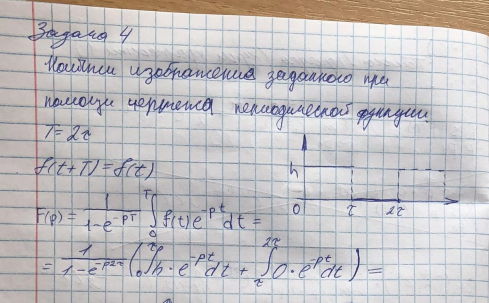 Задача 4
Найти изображение заданного при
помощи чертежа периодической функции.
T = 2τ
f(t+T) = f(t)
h
0 τ 2τ
F(p) = 1/(1-e^{-pT}) ∫_0^T f(t) e^{-pt} dt =
= 1/(1-e^{-p2τ}) (∫_0^τ h · e^{-pt} dt + ∫_τ^{2τ} 0 · e^{-pt} dt) =